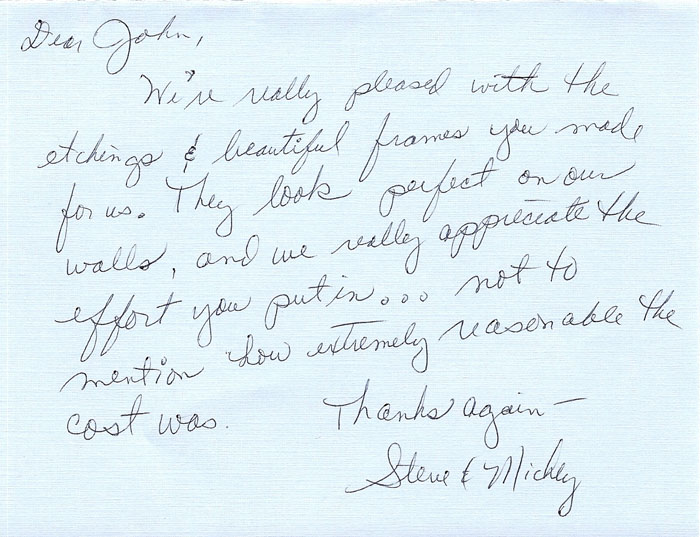 Dear John,
We're really pleased with the
etchings & beautiful frames you made
for us. They look perfect on our
walls, and we really appreciate the
effort you put in... not to
mention how extremely reasonable the
cost was. Thanks again —
Steve & Mickey